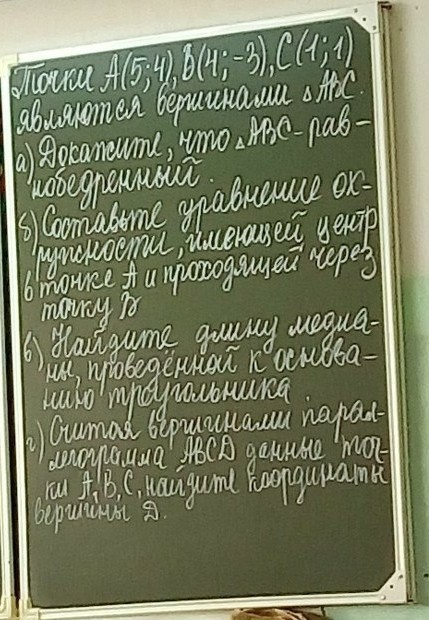 Точки А(5;4), В(4;-3), С(1;1)
являются вершинами △АВС.
а) Докажите, что △АВС - рав-
нобедренный.
б) Составьте уравнение ок-
ружности, имеющей центр
в точке А и проходящей через
точку В
в) Найдите длину медиа-
ны, проведённой к основа-
нию треугольника.
г) Считая вершинами парал-
лелограмма ABCD данные точ-
ки А, В, С, найдите координаты
вершины D.